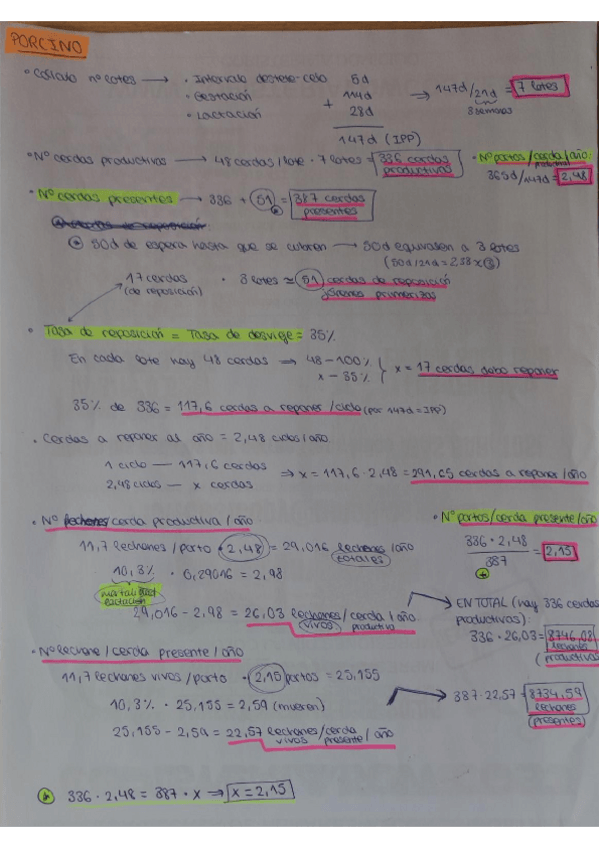 PORCINO
• Cálculo nº lotes → • Intervalo destete-celo 5d
• Gestación 114d ⇒ 147d/21d = 7 lotes
• Lactación + 28d 3 semanas
147d (IPP)
• Nº cerdas productivas → 48 cerdas/lote · 7 lotes = 336 cerdas productivas
• Nº partos/cerda productiva/año:
365d/147d = 2,48
• Nº cerdas presentes → 336 + 51 = 387 cerdas presentes
* 50d de espera hasta que se cubren → 50d equivalen a 3 lotes
(50d/21d = 2,38 ≈ 3)
17 cerdas (de reposición) · 3 lotes ≃ 51 cerdas de reposición
jóvenes primerizas
• Tasa de reposición = Tasa de desvieje = 35%
En cada lote hay 48 cerdas → 48 - 100%
x - 35% } x = 17 cerdas debo reponer
35% de 336 = 117,6 cerdas a reponer/ciclo (por 147d = IPP)
• Cerdas a reponer al año = 2,48 ciclos/año
1 ciclo — 117,6 cerdas
2,48 ciclos — x cerdas ⇒ x = 117,6 · 2,48 = 291,65 cerdas a reponer/año
• Nº lechones/cerda productiva/año
11,7 lechones/parto · 2,48 = 29,016 lechones/año totales
10,3% · 0,29016 = 2,98
mortalidad lactación
29,016 - 2,98 = 26,03 lechones vivos/cerda productiva/año
• Nº partos/cerda presente/año
336 · 2,48
387
= 2,15
→ EN TOTAL (hay 336 cerdas
productivas):
336 · 26,03 = 8746,08
lechones
(productivas
• Nº lechone/cerda presente/año
11,7 lechones vivos/parto · 2,15 partos = 25,155
10,3% · 25,155 = 2,59 (mueren)
25,155 - 2,59 = 22,57 lechones vivos/cerda presente/año
→ 387 · 22,57 = 8734,59
lechones
(presentes)
* 336 · 2,48 = 387 · x ⇒ x = 2,15